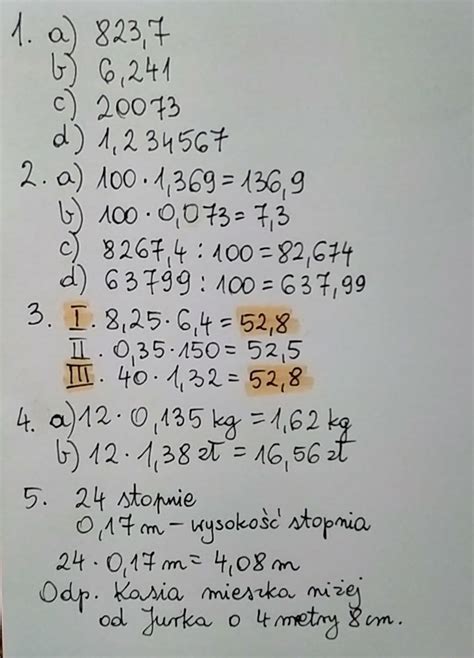 1. a) 823,7
b) 6,241
c) 20073
d) 1,234567
2. a) 100 · 1,369 = 136,9
b) 100 · 0,073 = 7,3
c) 8267,4 : 100 = 82,674
d) 63799 : 100 = 637,99
3. I. 8,25 · 6,4 = 52,8
II. 0,35 · 150 = 52,5
III. 40 · 1,32 = 52,8
4. a) 12 · 0,135 kg = 1,62 kg
b) 12 · 1,38 zł = 16,56 zł
5. 24 stopnie
0,17 m - wysokość stopnia
24 · 0,17 m = 4,08 m
Odp. Kasia mieszka niżej
od Jurka o 4 metry 8 cm.